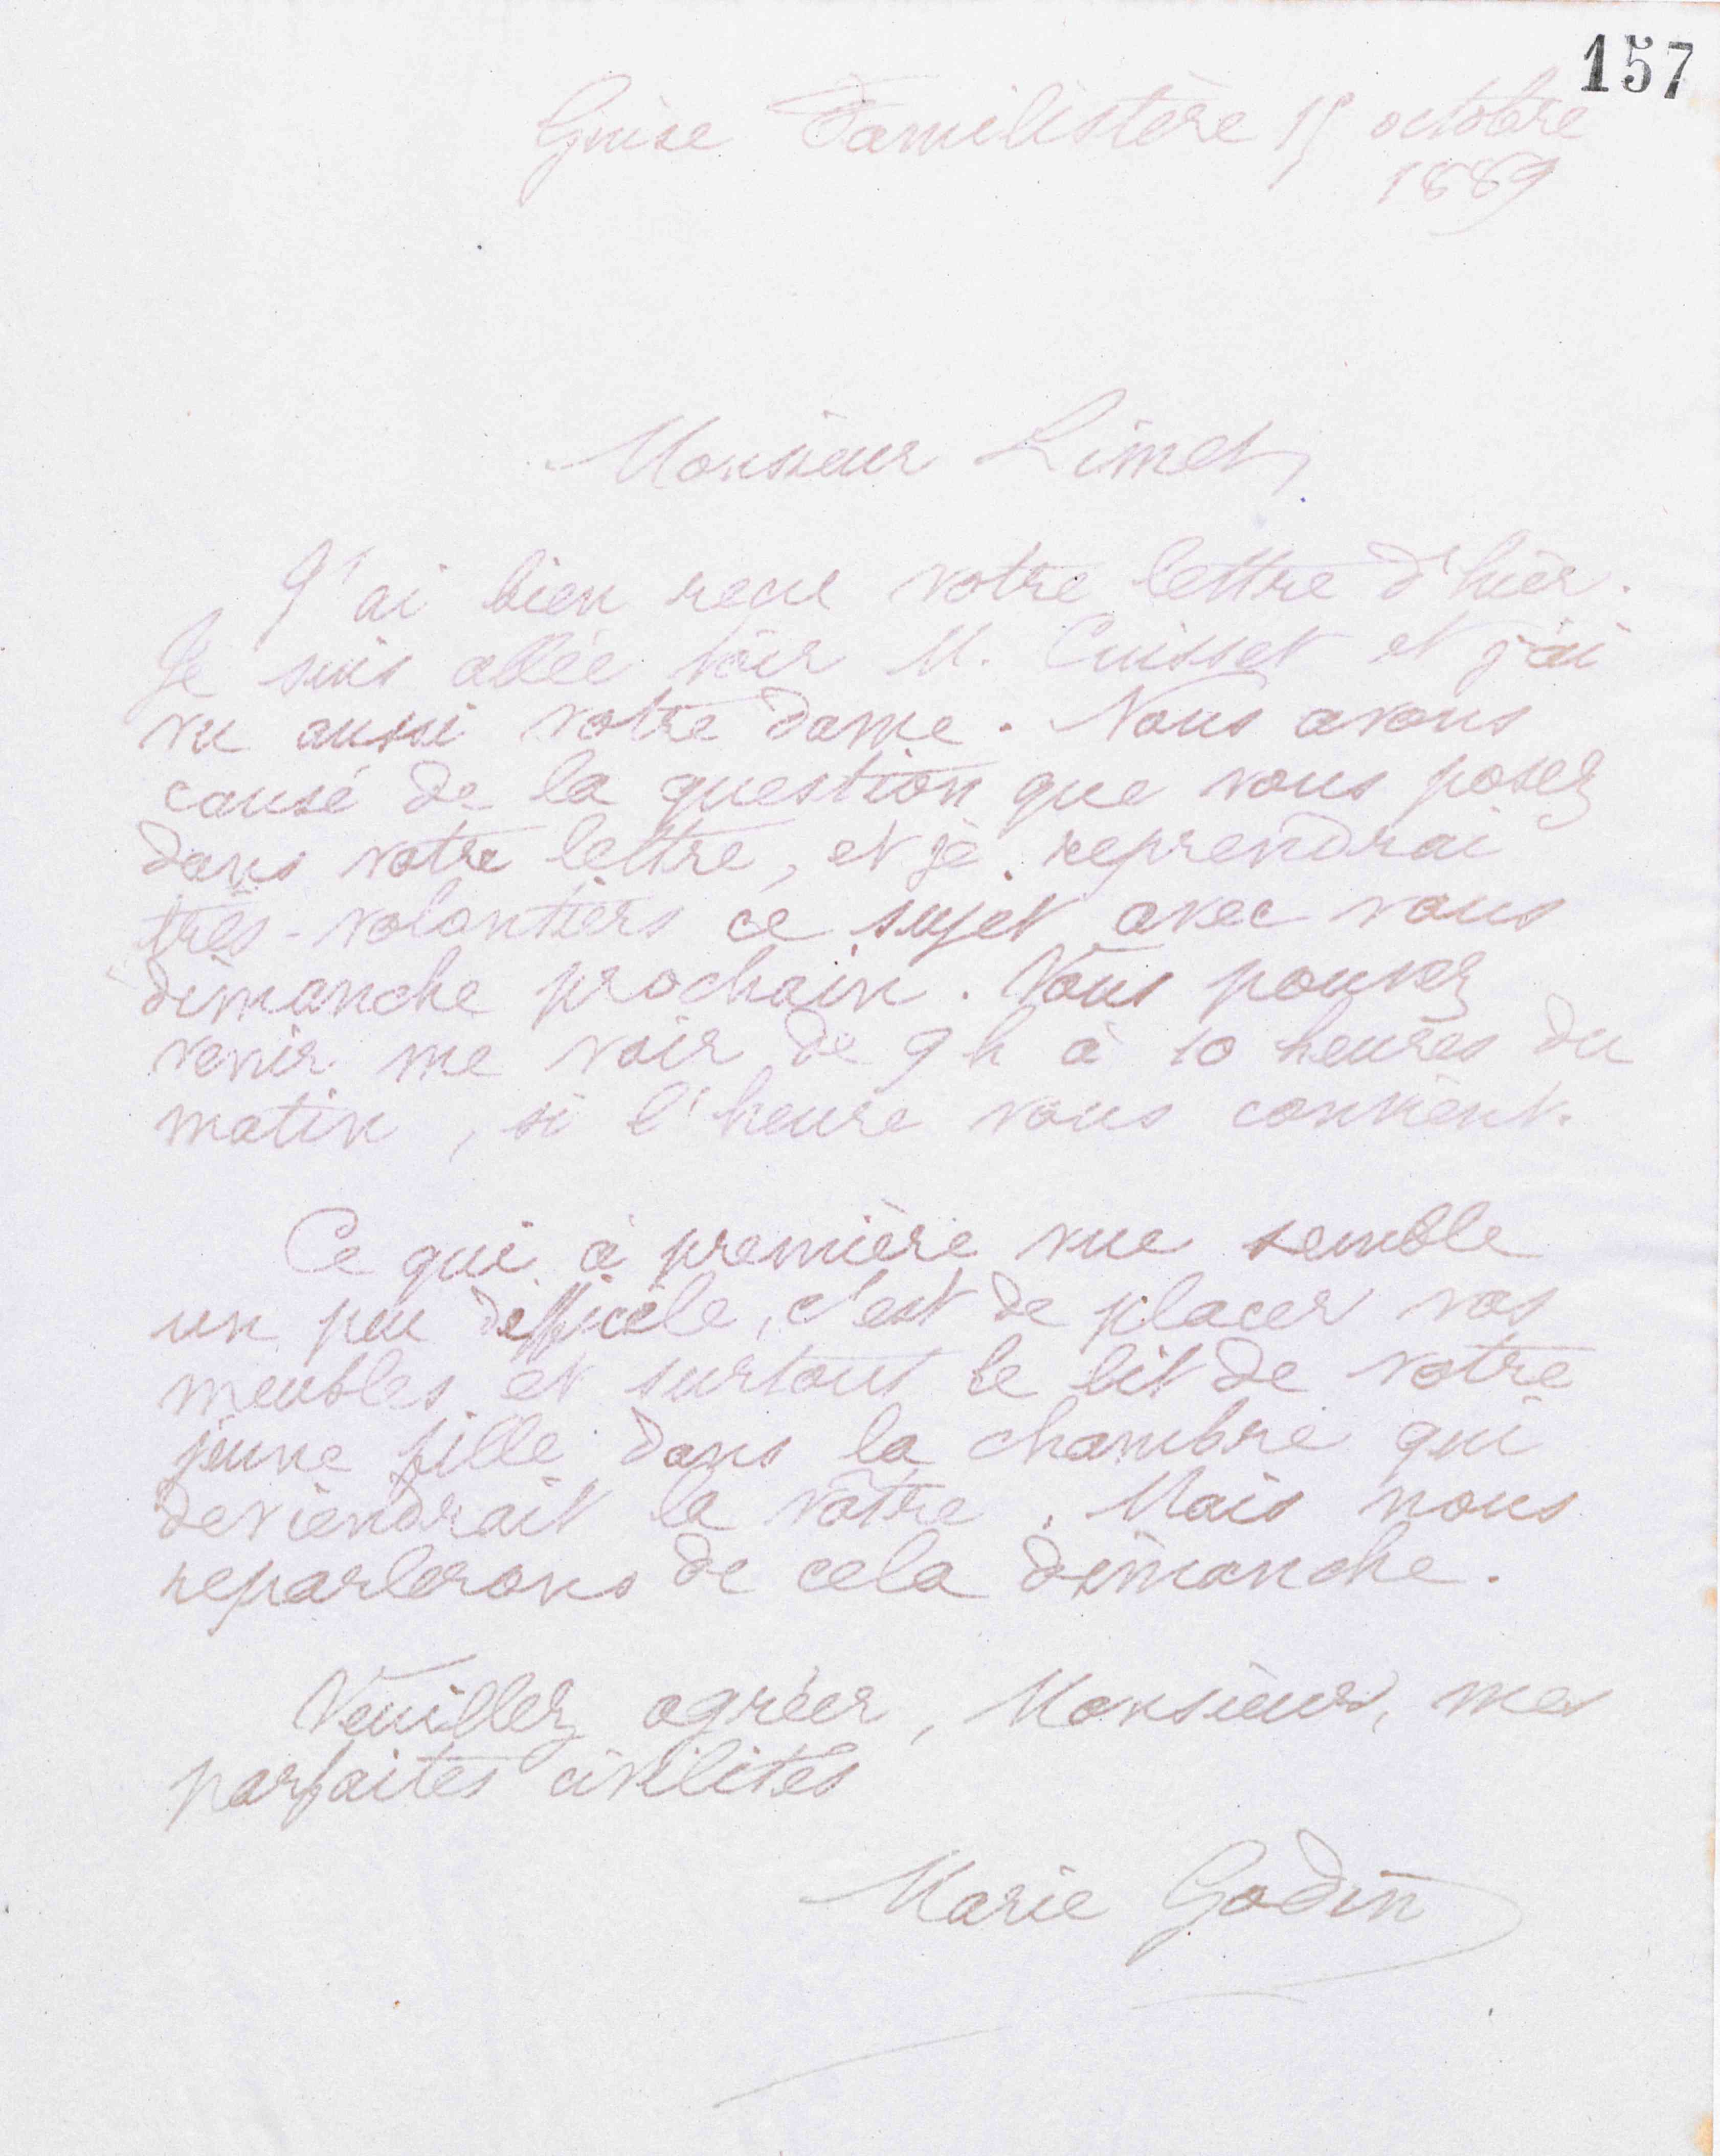 157
Guise Familistère 15 octobre
1889
Monsieur Limet,
J'ai bien reçu votre lettre d'hier.
Je suis allée voir M. Cuisset et j'ai
vu aussi votre dame. Nous avons
causé de la question que vous posez
dans votre lettre, et je reprendrai
très-volontiers ce sujet avec vous
dimanche prochain. Vous pouvez
venir me voir de 9 h à 10 heures du
matin, si l'heure vous convient.
Ce qui à première vue semble
un peu difficile, c'est de placer vos
meubles et surtout le lit de votre
jeune fille dans la chambre qui
deviendrait la vôtre. Mais nous
reparlerons de cela dimanche.
Veuillez agréer, Monsieur, mes
parfaites civilités
Marie Godin